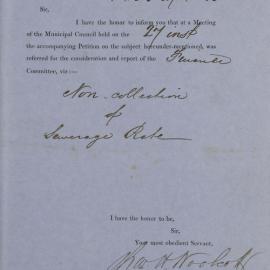 Sir,
I have the honor to inform you that at a Meeting
of the Municipal Council held on the 27 inst
the accompanying Petition on the subject hereunder-mentioned, was
referred for the consideration and report of the Finance
Committee, viz:—
Non-collection
of
Sewerage Rate
I have the honor to be,
Sir,
Your most obedient Servant,
Chas H Woolcott